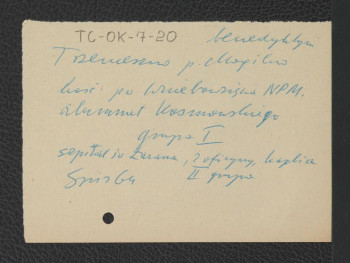 TC-OK-7-20
benedyktyni
Trzemeszno p. Mogilno
kość. po Wniebowzięcia NPM.
alumnat Kosmowskiego
grupa I
szpital iw Łazarza, 2 oficyny, kaplica
II grupa